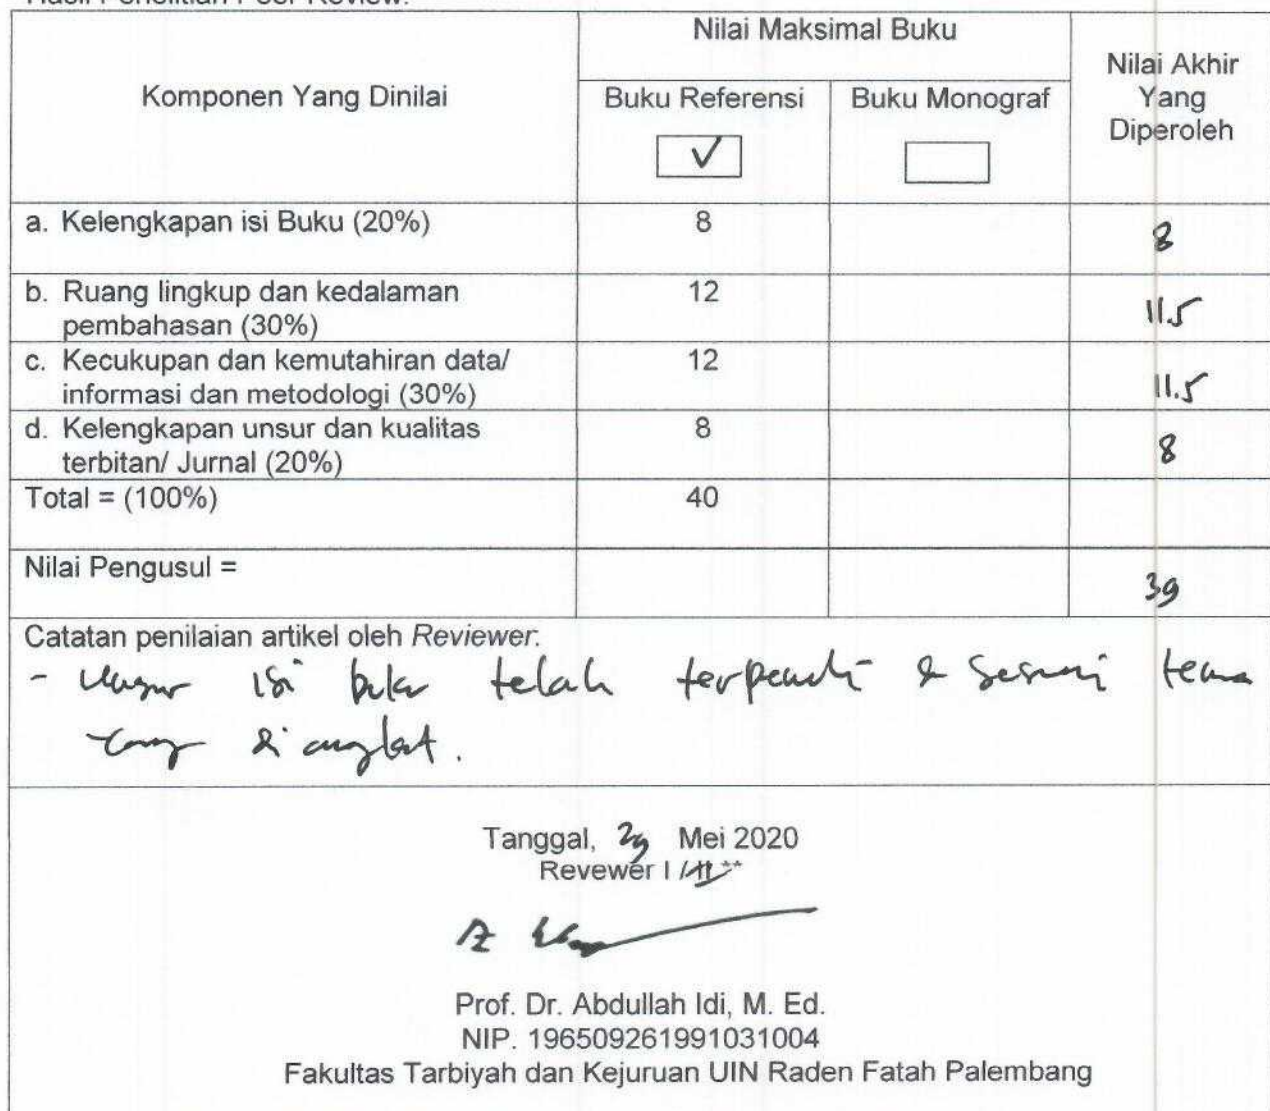 Hasil Penelitian Peer Review:
Komponen Yang Dinilai
Nilai Maksimal Buku
Nilai Akhir
Yang
Diperoleh
Buku Referensi
Buku Monograf
✓
a. Kelengkapan isi Buku (20%)
8
8
b. Ruang lingkup dan kedalaman
pembahasan (30%)
12
11.5
c. Kecukupan dan kemutahiran data/
informasi dan metodologi (30%)
12
11.5
d. Kelengkapan unsur dan kualitas
terbitan/ Jurnal (20%)
8
8
Total = (100%)
40
Nilai Pengusul =
39
Catatan penilaian artikel oleh Reviewer:
- Unsur isi buku telah terpenuhi & sesuai tema
yang diangkat.
Tanggal, 29 Mei 2020
Revewer I / II**
Prof. Dr. Abdullah Idi, M. Ed.
NIP. 196509261991031004
Fakultas Tarbiyah dan Kejuruan UIN Raden Fatah Palembang